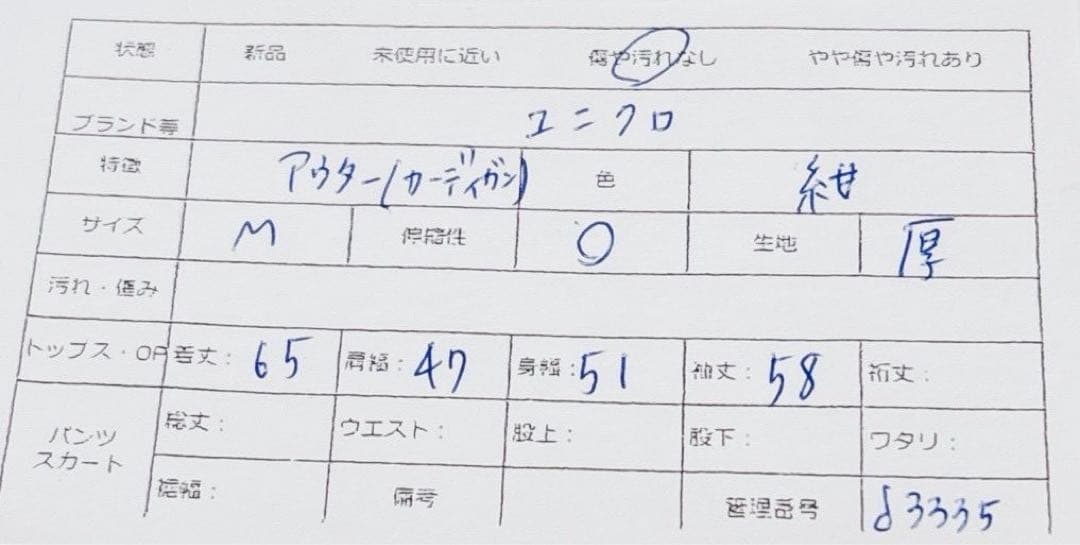 状態 新品 未使用に近い 傷や汚れなし やや傷や汚れあり
ブランド等 ユニクロ
特徴 アウター(カーディガン) 色 紺
サイズ M 伸縮性 〇 生地 厚
汚れ・傷み
トップス・OP 着丈: 65 肩幅: 47 身幅: 51 袖丈: 58 裄丈:
パンツ スカート 総丈: ウエスト: 股上: 股下: ワタリ:
裾幅: 備考 管理番号 d3335